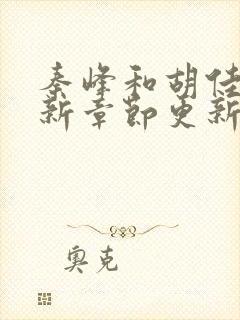 秦峰和胡佳
新章節更新
奧克